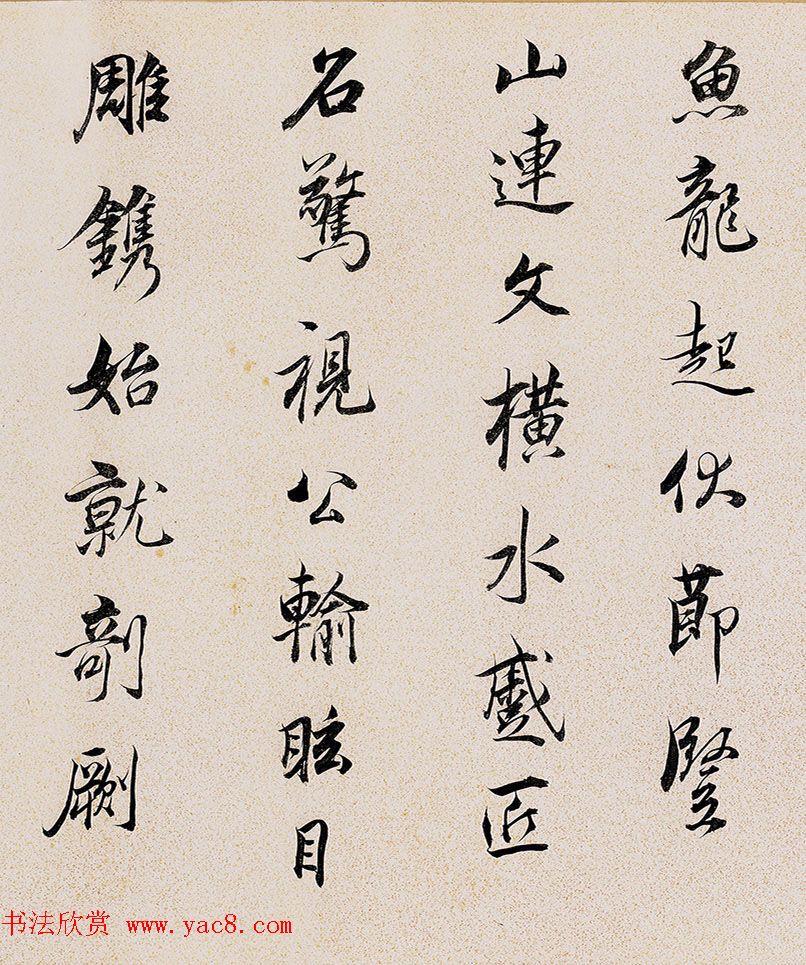 魚龍起伏莭豎
山連文橫水蹙匠
石驚視公輸眩目
雕鐫始就剞劂
书法欣赏 www.yac8.com